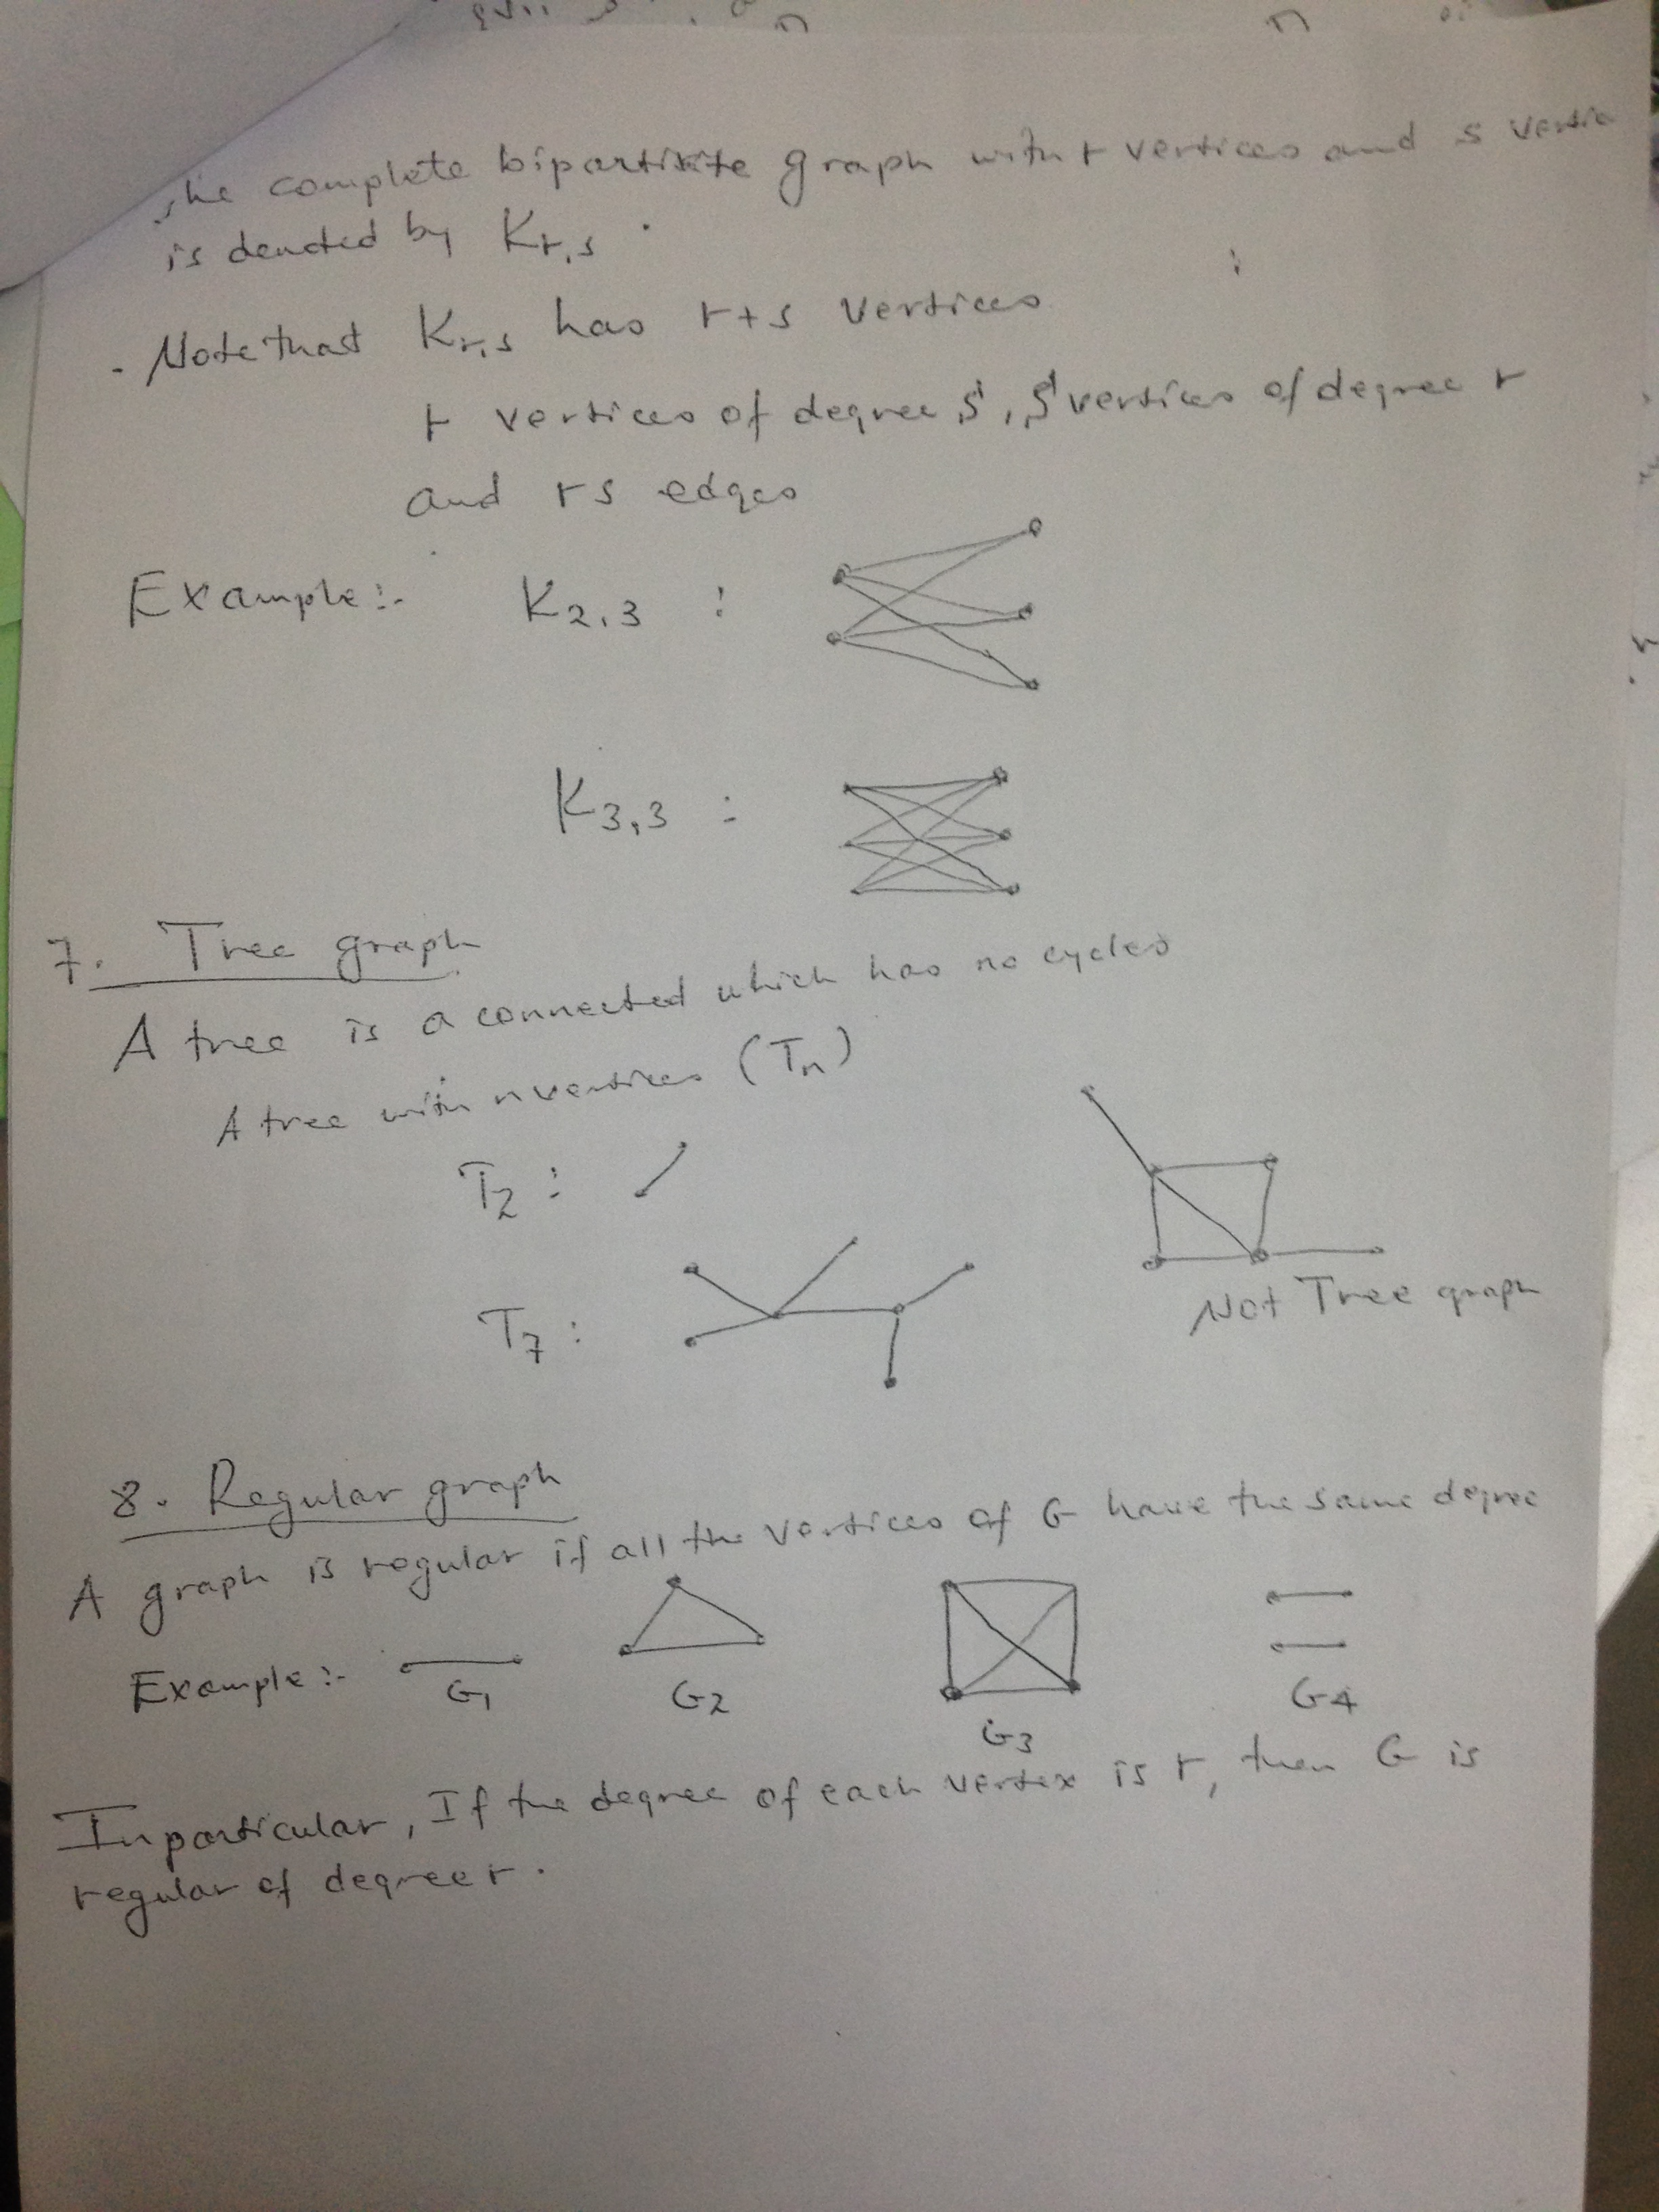 he complete bipartitite graph with r vertices and s vertic
is denoted by Kr,s .
. Note that Kr,s has r+s vertices
r vertices of degree s, s vertices of degree r
and rs edges
Example:- K2,3 :
K3,3 :
7. Tree graph
A tree is a connected which has no cycles
A tree with n vertices (Tn)
T2 :
T7 :
Not Tree graph
8. Regular graph
A graph is regular if all the vertices of G have the same degree
Example:- G1 G2 G3 G4
In particular, If the degree of each vertex is r, then G is
regular of degree r.